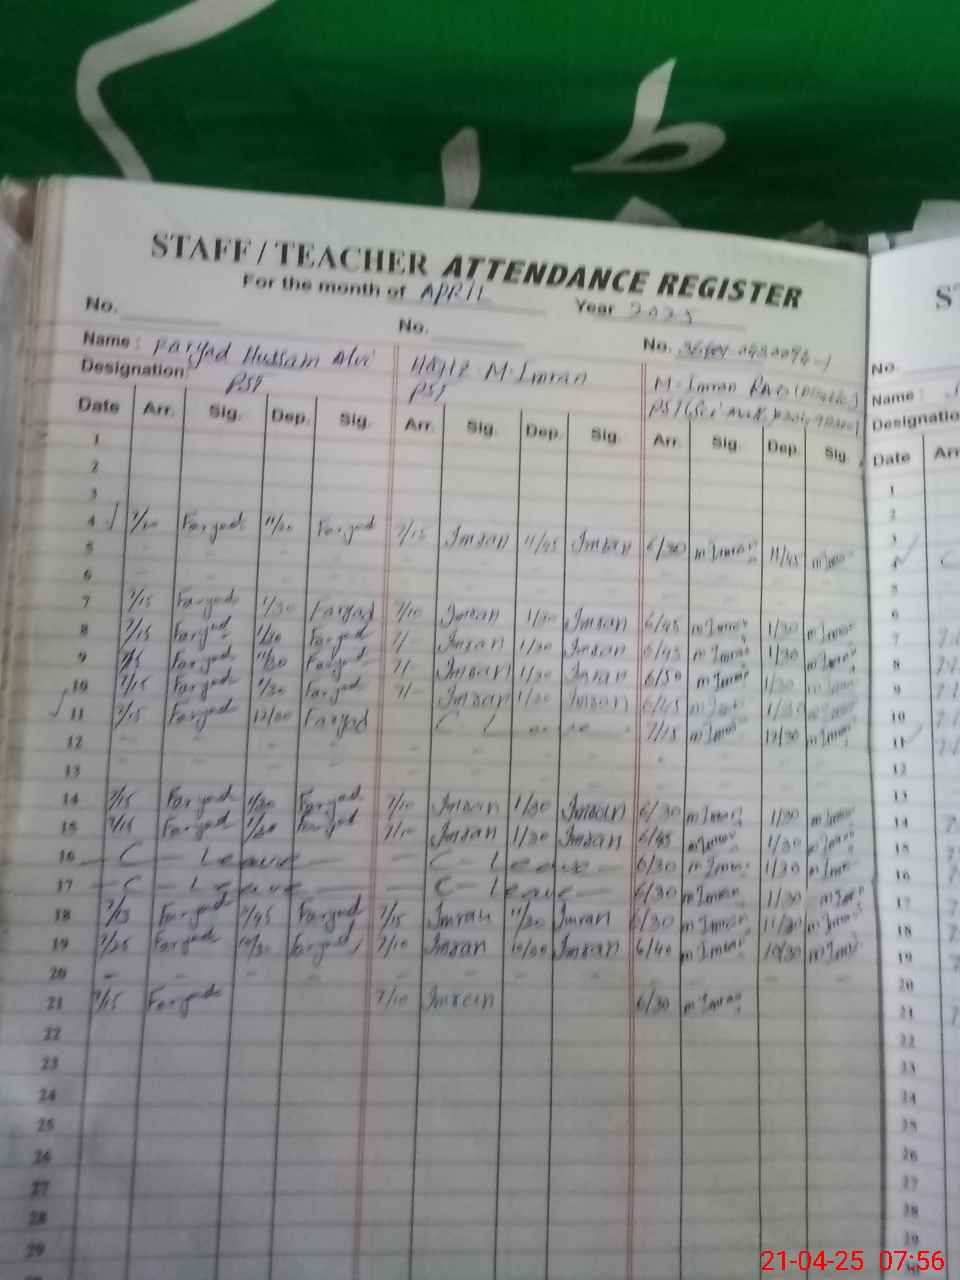 STAFF / TEACHER ATTENDANCE REGISTER
For the month of APRIL Year 2025
No. No. No.
Name : Faryad Hussain Alvi Hafiz M. Imran M. Imran
Designation: PST PST PST
Date Arr. Sig. Dep. Sig. Arr. Sig. Dep. Sig. Arr. Sig. Dep. Sig.
1
2
3
4 Faryad Faryad 7/15 Imran 11/45 Imran 6/30 m Imran 11/45
5
6
7 7/15 Faryad 1/30 Faryad 7/10 Imran 1/30 Imran 6/45 m Imran 1/30 m Imran
8 7/15 Faryad 1/30 Faryad 7/- Imran 1/30 Imran 6/45 m Imran 1/30 m Imran
9 Faryad Faryad 7/- Imran 1/30 Imran 6/50 m Imran 1/30 m Imran
10 7/15 Faryad 1/30 Faryad 7/- Imran 1/30 Imran 6/45 m Imran 1/30 m Imran
11 7/15 Faryad Faryad C Leave 7/15 m Imran 12/30 m Imran
12
13
14 7/15 Faryad 1/30 Faryad 7/10 Imran 1/30 Imran 6/30 m Imran 1/30 m Imran
15 7/15 Faryad 1/30 Faryad 7/10 Imran 1/30 Imran 6/45 m Imran 1/30 m Imran
16 - C - Leave - - C - Leave - 6/30 m Imran 1/30 m Imran
17 - C - Leave - - C - Leave - 6/30 m Imran 1/30 m Imran
18 Faryad Faryad 7/15 Imran 11/30 Imran 6/30 m Imran 11/30 m Imran
19 7/25 Faryad 10/30 Faryad 7/10 Imran 10/30 Imran 6/40 m Imran 10/30 m Imran
20
21 7/15 Faryad 7/10 Imran 6/30 m Imran
22
23
24
25
26
27
28
29
No.
Name :
Designatio
Date Arr
1
2
3
4
5
6
7
8
9
10
11
12
13
14
15
16
17
18
19
20
21
22
23
24
25
26
27
28
29
21-04-25 07:56